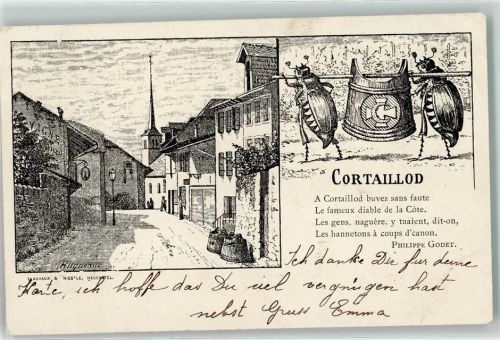 CORTAILLOD
A Cortaillod buvez sans faute
Le fameux diable de la Côte.
Les gens, naguère, y tuaient, dit-on,
Les hannetons à coups d'canon.
PHILIPPE GODET.
Huguenin
BACHAUX & NIESTLÉ, NEUCHATEL.
Ich danke Dir für deine
Karte, ich hoffe das Du viel vergnügen hast
nebst Gruss Emma